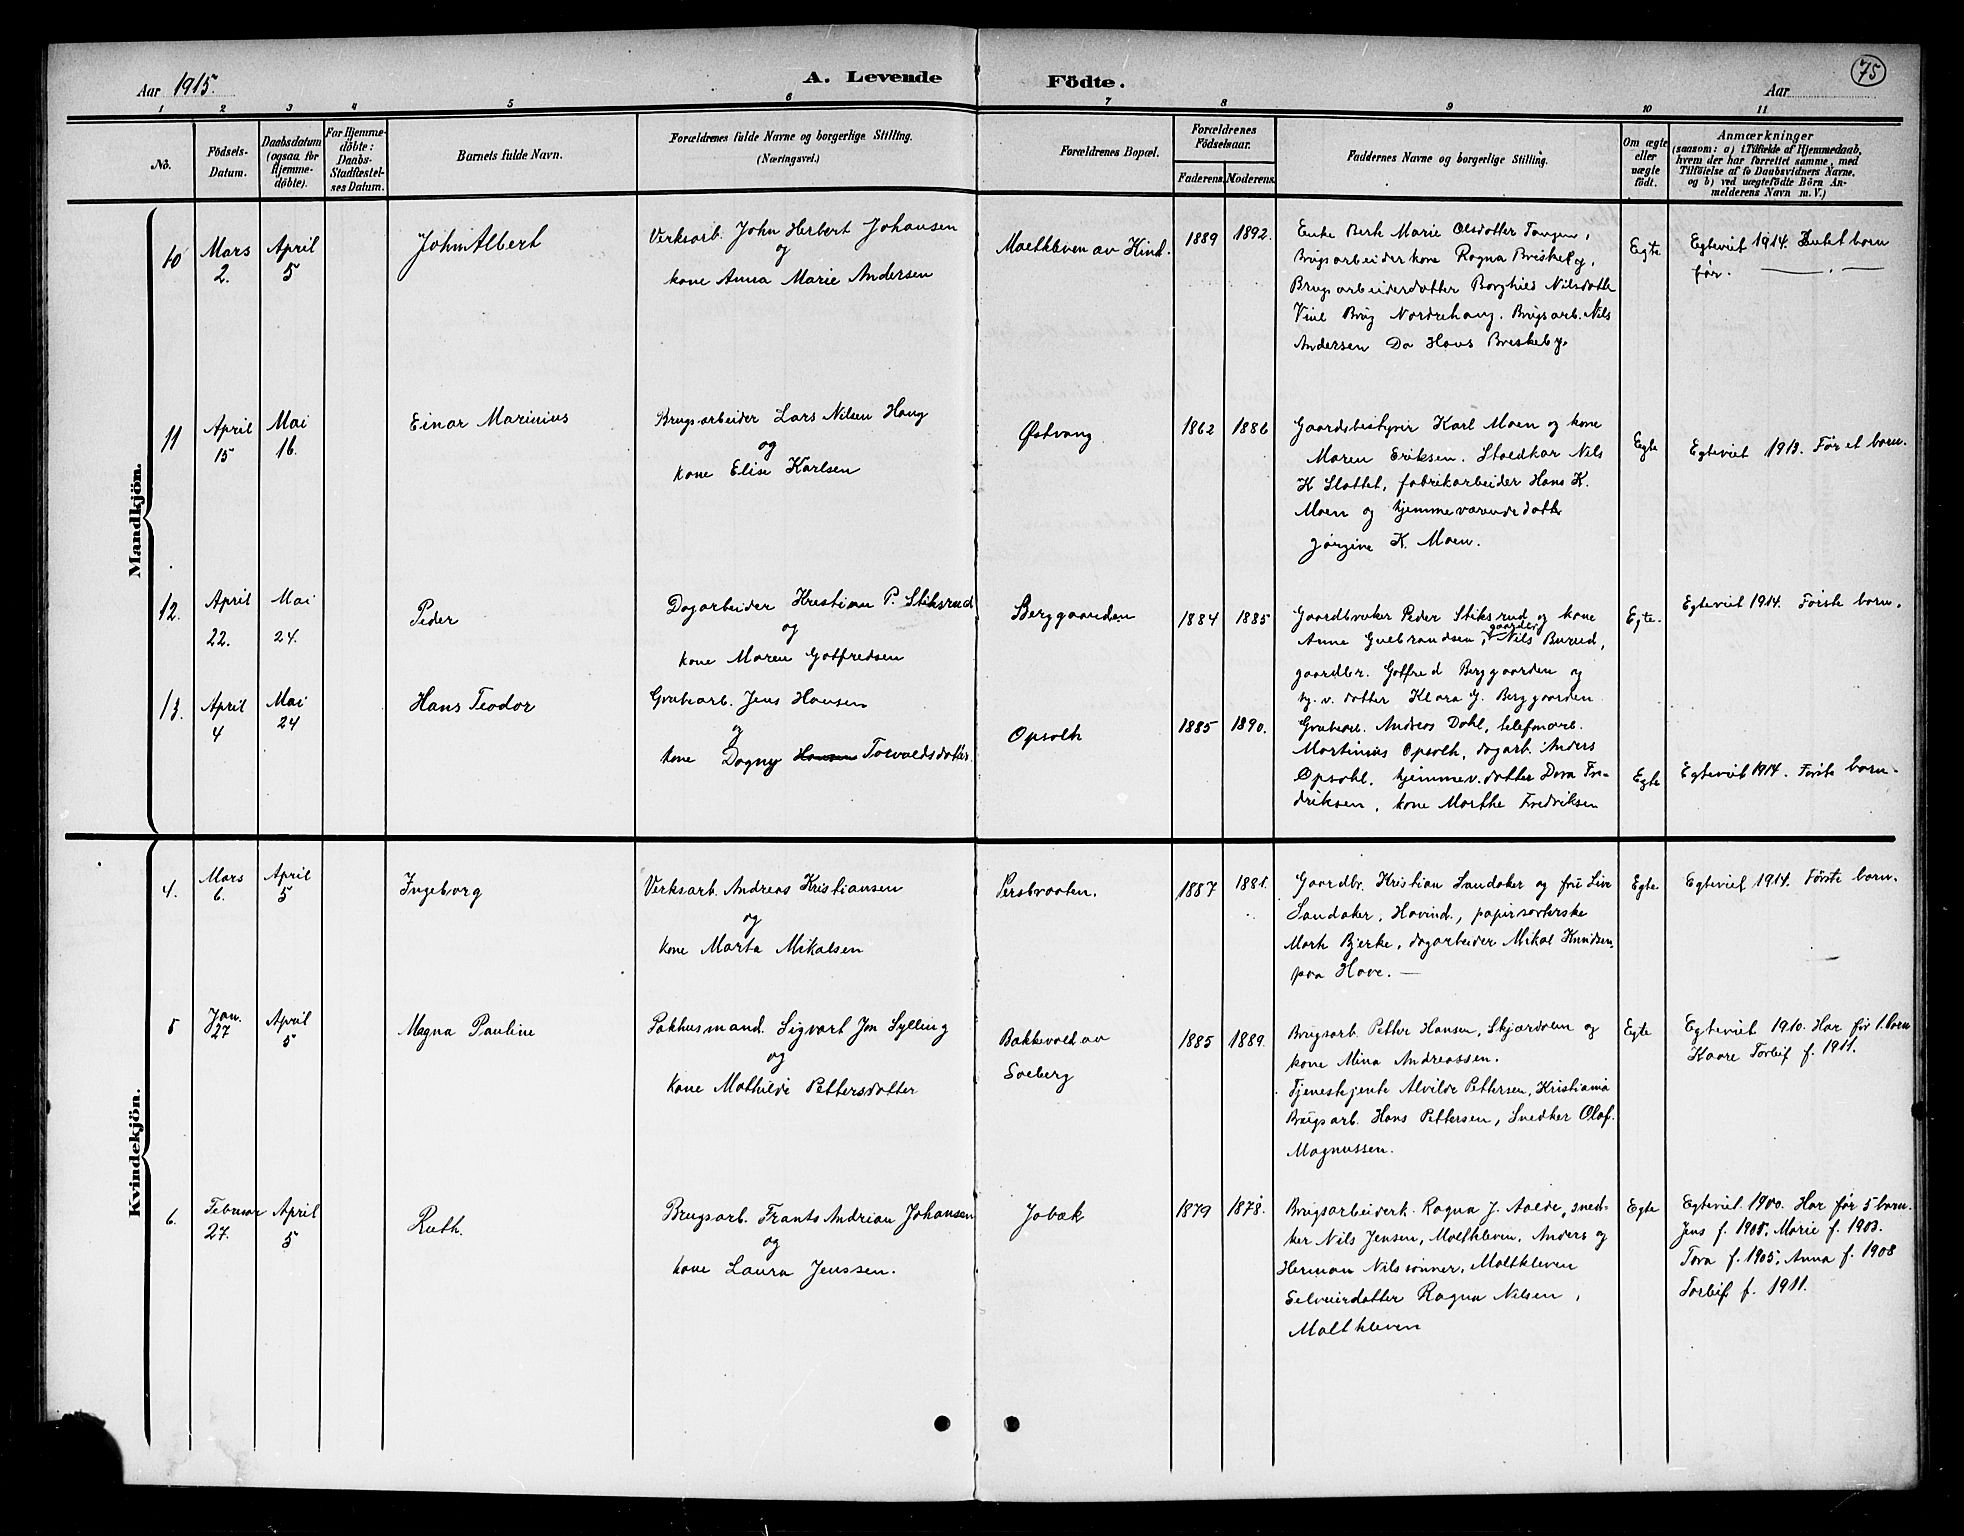 Aar 1915.
A. Levende
Födte.
Aar
75
1 2 3 4 5 6 7 8 9 10 11
No.
Födsels-
Datum.
Daabsdatum
(ogsaa for
Hjemme-
døbte).
For Hjemme-
døbte:
Daabs-
Stadfæstel-
ses Datum.
Barnets fulde Navn.
Forældrenes fulde Navne og borgerlige Stilling.
(Næringsvei.)
Forældrenes Bopæl.
Forældrenes
Födselsaar.
Faderens. Moderens.
Faddernes Navne og borgerlige Stilling.
Om ægte
eller
uægte
født.
Anmærkninger
(saasom: a) i Tilfælde af Hjemmedaab,
hvem der har forrettet samme, med
Tilföielse af to Daabsvidners Navne,
og b) ved uægtefödte Börn An-
melderens Navn m. V.)
Mandkjön.
10
Mars
2.
April
5
John Albert
Verksarb. John Herbert Johansen
og
kone Anna Marie Andersen
Moltkleven av Hind.
1889
1892.
Enke Berte Marie Olsdotter Tangen,
Brugsarbeiderkone Ragna Briskeby,
Brugsarbeiderdatter Borghild Nilsdotte
Viul Brug Norderhaug. Brugsarb. Nils
Andersen Do Hans Breskeby.
Egte
Egteviet 1914. Intet barn
før.
11
April
15
Mai
16.
Einar Marinius
Brugsarbeider Lars Nilsen Haug
og
kone Elise Karlsen
Østvang
1862
1886
Gaardsbestyrer Karl Moen og kone
Maren Eriksen. Staldkar Nils
K Slottet, fabrikarbeider Hans K.
Moen og hjemmeværende datter
Jørgine K. Moen.
Egte
Egteviet 1913. Før et barn.
12.
April
22.
Mai
24.
Peder
Dagarbeider Kristian P. Stiksrud
og
kone Maren Gotfredsen
Berggaarden
1884
1885
Gaardbruker Peder Stiksrud og kone
Anne Gulbrandsen, gaarder Nils Burud,
gaardbr. Gotfred Berggaarden og
hj. v. datter Klara G. Berggaarden
Egte.
Egteviet 1914. Første barn.
13.
April
4
Mai
24
Hans Teodor
Grubearb. Jens Hansen
og
kone Dagny Hansen Torvaldsdotter
Opsalh
1885
1890.
Grubearb. Andreas Dahl, telefonarb.
Martinius Opsalh, dagarb. Anders
Opsahl, hjemmev. datter Dora Fre-
driksen, kone Marthe Fredriksen
Egte
Egteviet 1914. Første barn.
Kvindekjön.
4.
Mars
6.
April
5
Ingeborg
Verksarb. Andreas Kristiansen
og
kone Marta Mikalsen
Persbraaten.
1887
1881.
Gaardbr. Kristian Sandaker og fru Live
Sandaker, Hovind, papirsorterske
Marte Bjerke, dagarbeider Mikal Knudsen,
paa Hove. —
Egte
Egteviet 1914. Første barn.
5
Jan.
27
April
5
Magna Pauline
Pakhusmand. Sigvart Jon Sylling
og
kone Mathilde Pettersdatter
Bakkevold av
Solberg
1885
1889.
Brugsarb. Petter Hansen, Skjærdalen og
kone Mina Andreassen.
Tjenestejente Alvilde Pettersen, Kristiania
Brugsarb. Hans Pettersen, Snedker Olaf
Magnussen.
Egte
Egteviet 1910. Har før 1. barn
Kaare Torleif f. 1911.
6.
Februar
27.
April
5
Ruth.
Brugsarb. Frants Andrian Johansen
og
kone Laura Jenssen.
Jobæk
1879
1878.
Brugsarbeiderk. Ragna J. Aalde, sned-
ker Nils Jensen, Moltkleven, Anders og
Herman Nilssønner, Moltkleven
Selveierdatter Ragna Nilsen,
Moltkleven
Egte
Egteviet 1900. Har før 5 barn.
Jens f. 1901, Marie f. 1903.
Tora f. 1905, Anna f. 1908
Torleif f. 1911.